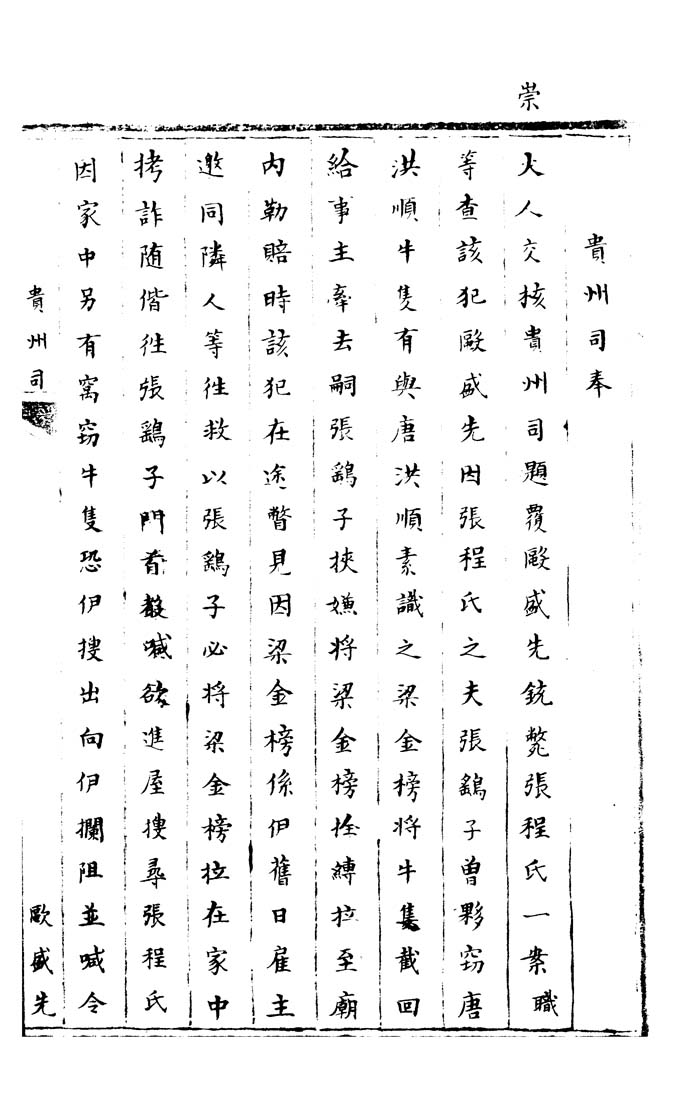 崇
貴州司奉
大人交核貴州司題覆歐盛先銃斃張程氏一案職
等查該犯歐盛先因張程氏之夫張鷄子曾夥窃唐
洪順牛隻有與唐洪順素識之梁金榜將牛隻截回
給事主牽去嗣張鷄子挾嫌將梁金榜拴縛拉至廟
内勒賠時該犯在途瞥見因梁金榜係伊舊日雇主
邀同隣人等徃救以張鷄子必將梁金榜拉在家中
拷詐随偕徃張鷄子門首喊欲進屋搜尋張程氏
因家中另有窩窃牛隻恐伊搜出向伊攔阻並喊令
貴州司
歐盛先